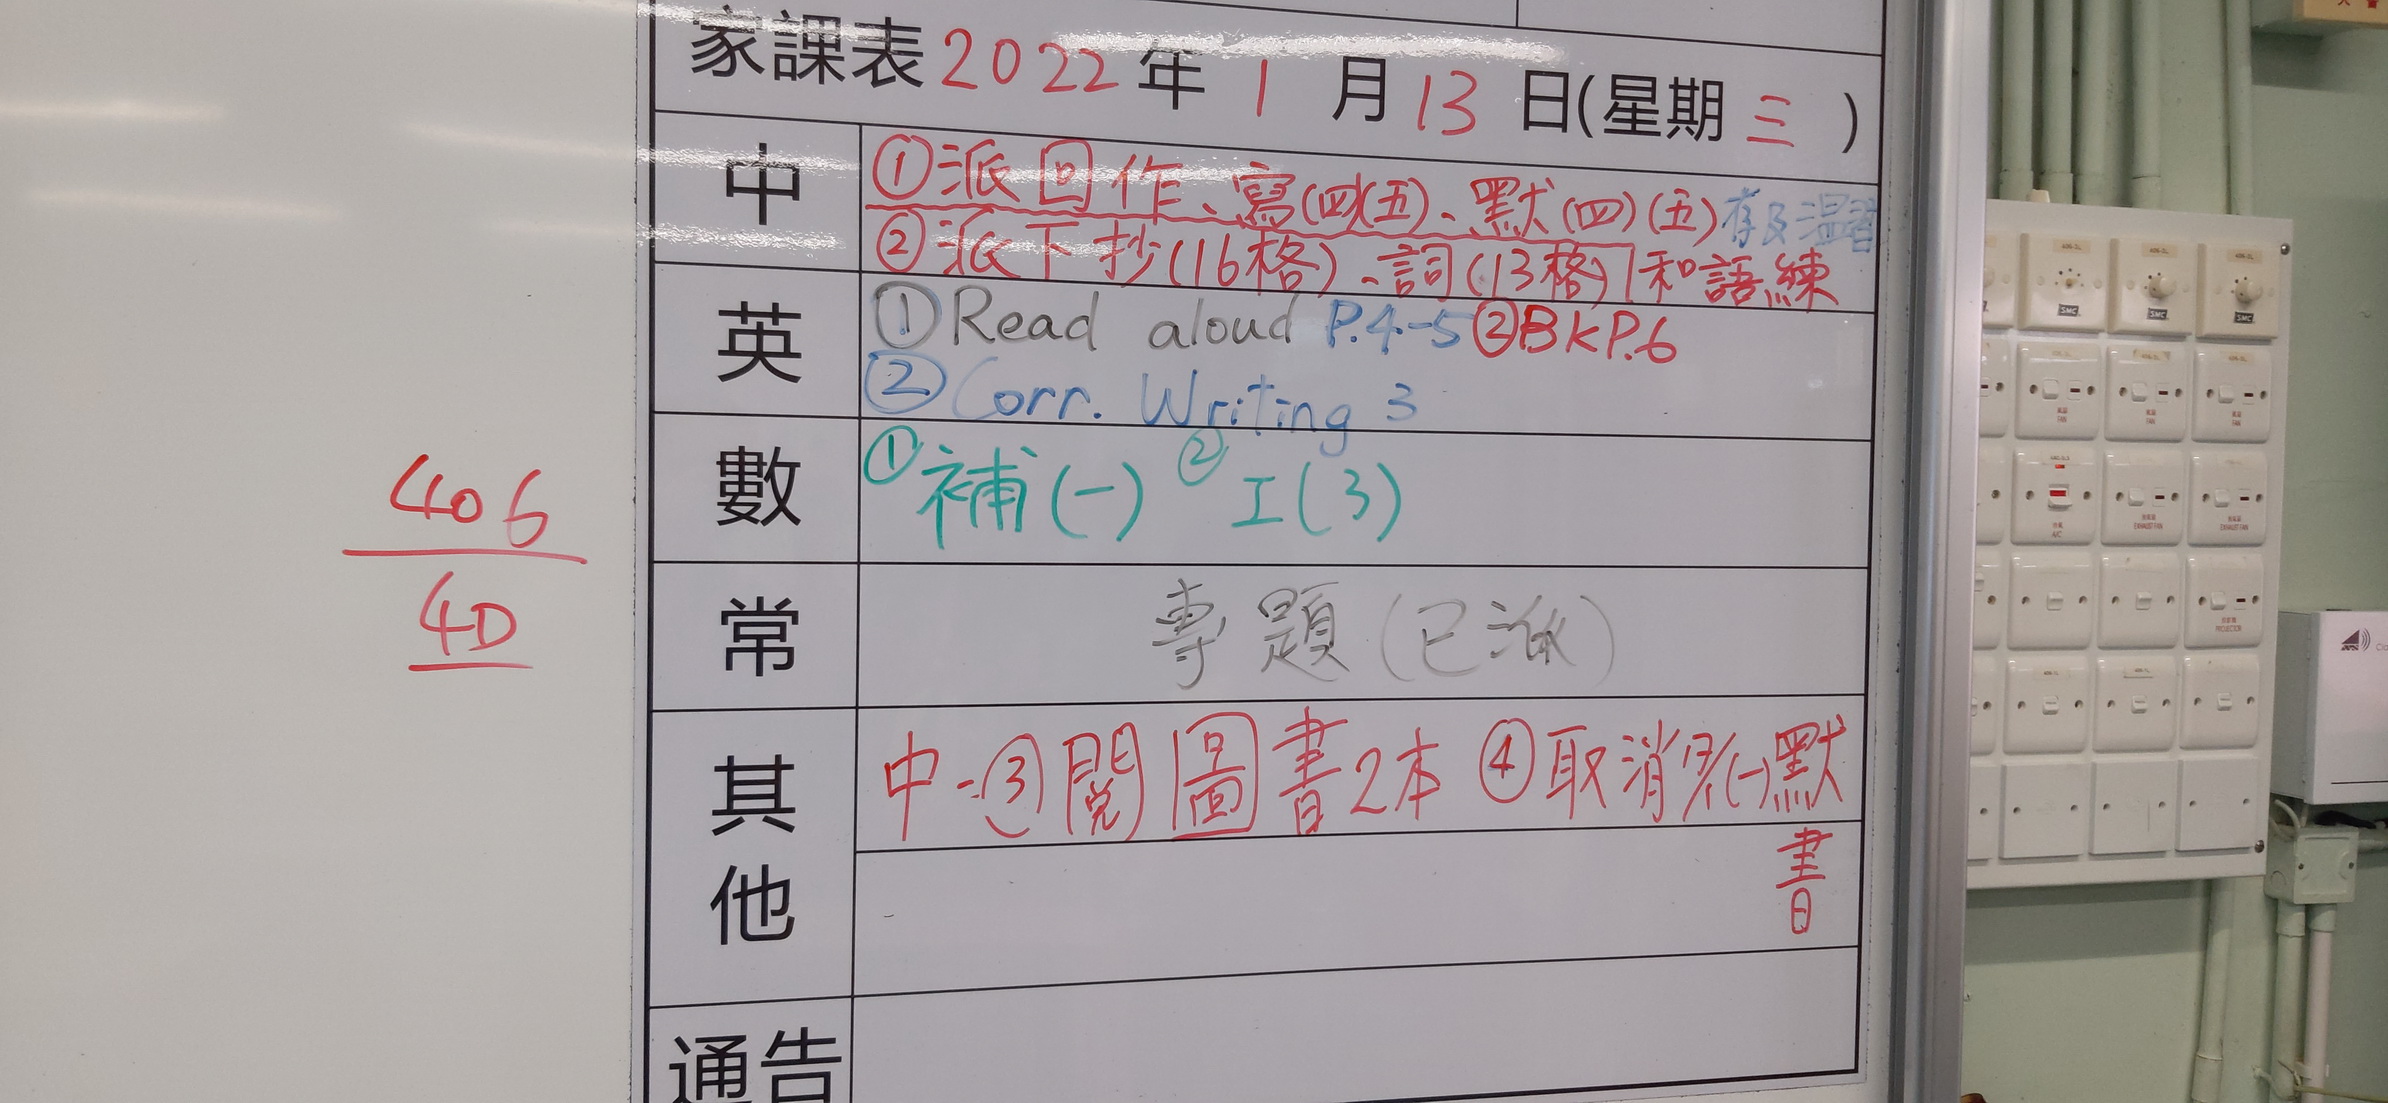 家課表2022年1月13日(星期三)
中
①派回作、寫(四)(五)、默(四)(五)存及温習
②派下抄(16格)、詞(13格)和語練
英
①Read aloud P.4-5②BKP.6
②Corr. Writing 3
數
①補(一) ②工(3)
常
專題(已派)
其他
中-③閱圖書2本 ④取消(一)默
書
通告
406
4D
SMC
SMC
SMC
FAN
FAN
FAN
A/C
EXHAUST FAN
EXHAUST FAN
PROJECTOR